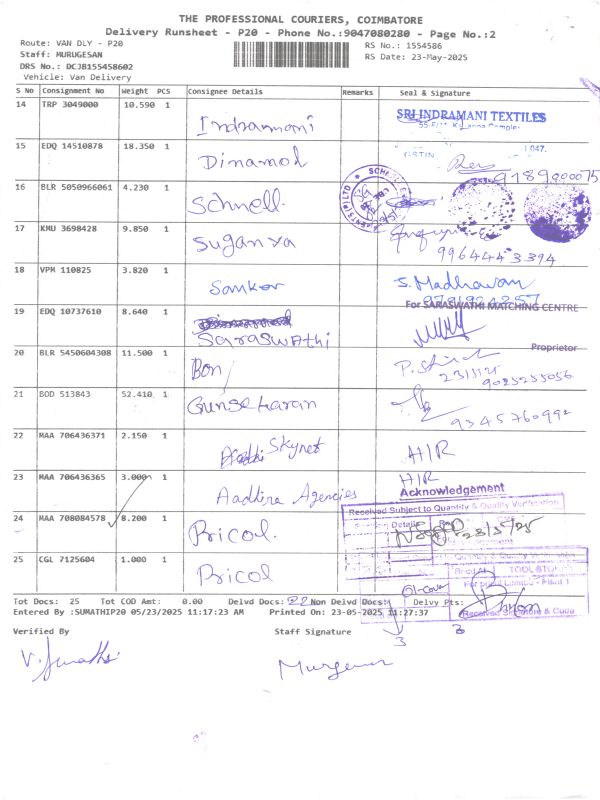 THE PROFESSIONAL COURIERS, COIMBATORE
Delivery Runsheet - P20 - Phone No.:9047080280 - Page No.:2
Route: VAN DLY - P20
RS No.: 1554586
Staff: MURUGESAN
RS Date: 23-May-2025
DRS No.: DCJB155458602
Vehicle: Van Delivery
S No Consignment No Weight PCS Consignee Details Remarks Seal & Signature
14 TRP 3049000 10.590 1 Indramani SRI INDRAMANI TEXTILES
15 EDQ 14510878 18.350 1 Dinamol
9189000075
16 BLR 5050966061 4.230 1 Schnell.
17 KMU 3698428 9.850 1 Suganya
9964443394
18 VPM 110825 3.820 1 Sankar S. Madhavan
For SARASWATHI MATCHING CENTRE
19 EDQ 10737610 8.640 1 Saraswathi
Proprietor
20 BLR 5450604308 11.500 1 Bon
9025255056
21 BOD 513843 52.410 1 Gunsekaran
9345760992
22 MAA 706436371 2.150 1 Skynet AIR
23 MAA 706436365 3.000 1 Aadhira Agencies AIR
Acknowledgement
Received Subject to Quantity & Quality Verification
24 MAA 708084578 8.200 1 Pricol. 23/5/25
25 CGL 7125604 1.000 1 Pricol
Tot Docs: 25 Tot COD Amt: 0.00 Delvd Docs: 22 Non Delvd Docs: Delvy Pts:
Entered By :SUMATHIP20 05/23/2025 11:17:23 AM Printed On: 23-05-2025 11:27:37
3
Verified By Staff Signature